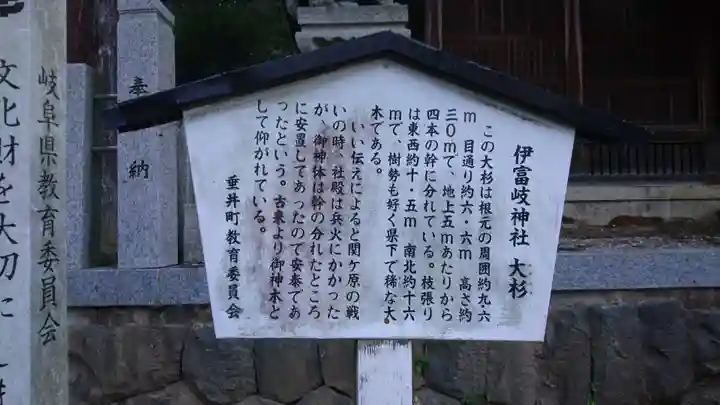 伊富岐神社 大杉
この大杉は根元の周囲約九・六
m 目通り約六・六m 高さ約
三〇mで、地上五mあたりから
四本の幹に分れている。枝張り
は東西約十・五m 南北約十六
mで、樹勢も好く県下で稀な大
木である。
いい伝えによると関ケ原の戦
いの時、社殿は兵火にかかった
が、御神体は幹の分れたところ
に安置してあったので安泰であ
ったという。古来より御神木と
して仰がれている。
垂井町教育委員会
奉納
岐阜県教育委員会
文化財を大切に